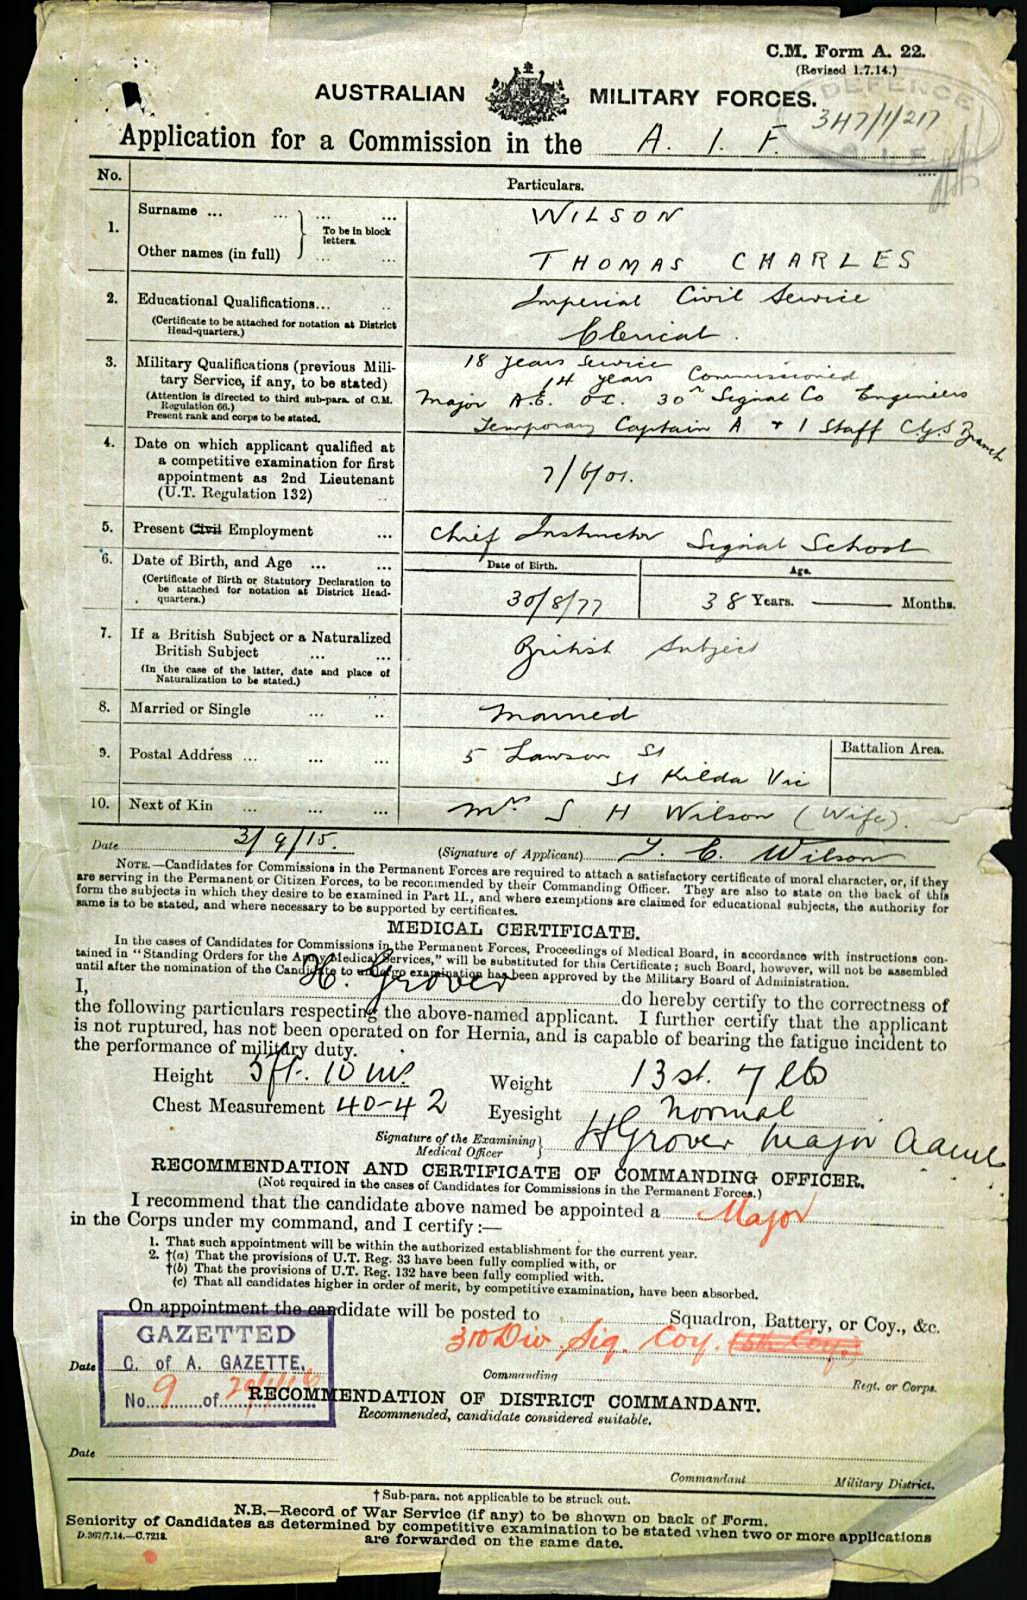 C.M. Form A. 22.
(Revised 1.7.14.)
DEFENCE
347/1/217
A.I.F.
AUSTRALIAN MILITARY FORCES.
Application for a Commission in the A. I. F.
No. Particulars.
1. Surname ... ... ... ... WILSON
To be in block letters.
Other names (in full) ... ... THOMAS CHARLES
2. Educational Qualifications... ... Imperial Civil Service
(Certificate to be attached for notation at District Head-quarters.) Clerical.
3. Military Qualifications (previous Mili- 18 years service
tary Service, if any, to be stated) 14 years Commissioned
(Attention is directed to third sub-para. of C.M. Regulation 66.) Major A.E. O.C. 30th Signal Co Engineers
Present rank and corps to be stated. Temporary Captain A & I Staff C.G.S Branch
4. Date on which applicant qualified at
a competitive examination for first
appointment as 2nd Lieutenant 7/6/01.
(U.T. Regulation 132) ...
5. Present Civil Employment ... Chief Instructor Signal School
6. Date of Birth, and Age ... ... Date of Birth. Age.
(Certificate of Birth or Statutory Declaration to
be attached for notation at District Head-
quarters.) 30/8/77 38 Years. — Months.
7. If a British Subject or a Naturalized
British Subject ... ... British Subject
(In the case of the latter, date and place of
Naturalization to be stated.)
8. Married or Single ... ... Married
9. Postal Address ... ... ... 5 Lawson St Battalion Area.
St Kilda Vic
10. Next of Kin ... ... ... Mrs S H Wilson (Wife).
Date 3/9/15. (Signature of Applicant) T. C. Wilson
NOTE.—Candidates for Commissions in the Permanent Forces are required to attach a satisfactory certificate of moral character, or, if they
are serving in the Permanent or Citizen Forces, to be recommended by their Commanding Officer. They are also to state on the back of this
form the subjects in which they desire to be examined in Part II., and where exemptions are claimed for educational subjects, the authority for
same is to be stated, and where necessary to be supported by certificates.
MEDICAL CERTIFICATE.
In the cases of Candidates for Commissions in the Permanent Forces, Proceedings of Medical Board, in accordance with instructions con-
tained in "Standing Orders for the Army Medical Services," will be substituted for this Certificate; such Board, however, will not be assembled
until after the nomination of the Candidate to undergo examination has been approved by the Military Board of Administration.
I, H. Grover do hereby certify to the correctness of
the following particulars respecting the above-named applicant. I further certify that the applicant
is not ruptured, has not been operated on for Hernia, and is capable of bearing the fatigue incident to
the performance of military duty.
Height 5ft. 10 ins. Weight 13 st. 7 lbs
Chest Measurement 40-42 Eyesight Normal
Signature of the Examining Medical Officer } H Grover Major Aamc
RECOMMENDATION AND CERTIFICATE OF COMMANDING OFFICER.
(Not required in the cases of Candidates for Commissions in the Permanent Forces.)
I recommend that the candidate above named be appointed a Major
in the Corps under my command, and I certify :—
1. That such appointment will be within the authorized establishment for the current year.
2. †(a) That the provisions of U.T. Reg. 33 have been fully complied with, or
†(b) That the provisions of U.T. Reg. 132 have been fully complied with.
(c) That all candidates higher in order of merit, by competitive examination, have been absorbed.
On appointment the candidate will be posted to Squadron, Battery, or Coy., &c.
3rd Div. Sig. Coy.
GAZETTED
Date C. of A. GAZETTE. Commanding Regt. or Corps.
No. 9 of
RECOMMENDATION OF DISTRICT COMMANDANT.
Recommended, candidate considered suitable.
Date
Commandant Military District.
† Sub-para. not applicable to be struck out.
N.B.—Record of War Service (if any) to be shown on back of Form.
Seniority of Candidates as determined by competitive examination to be stated when two or more applications
are forwarded on the same date.
D.367/7.14.—C.7218.